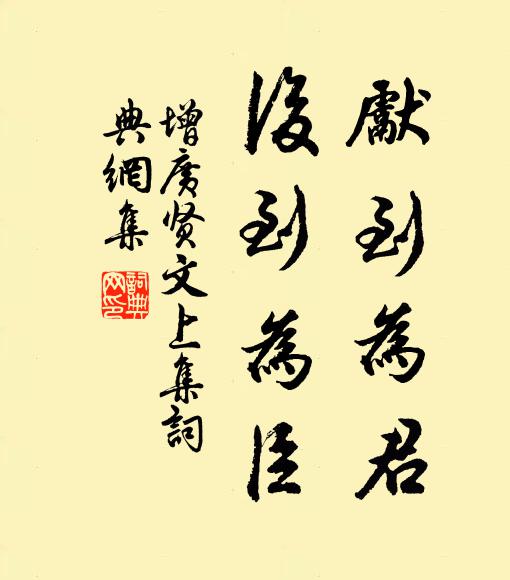 獻到為君
後到為臣
增廣贤文上集詞
典網集
詞典
网印